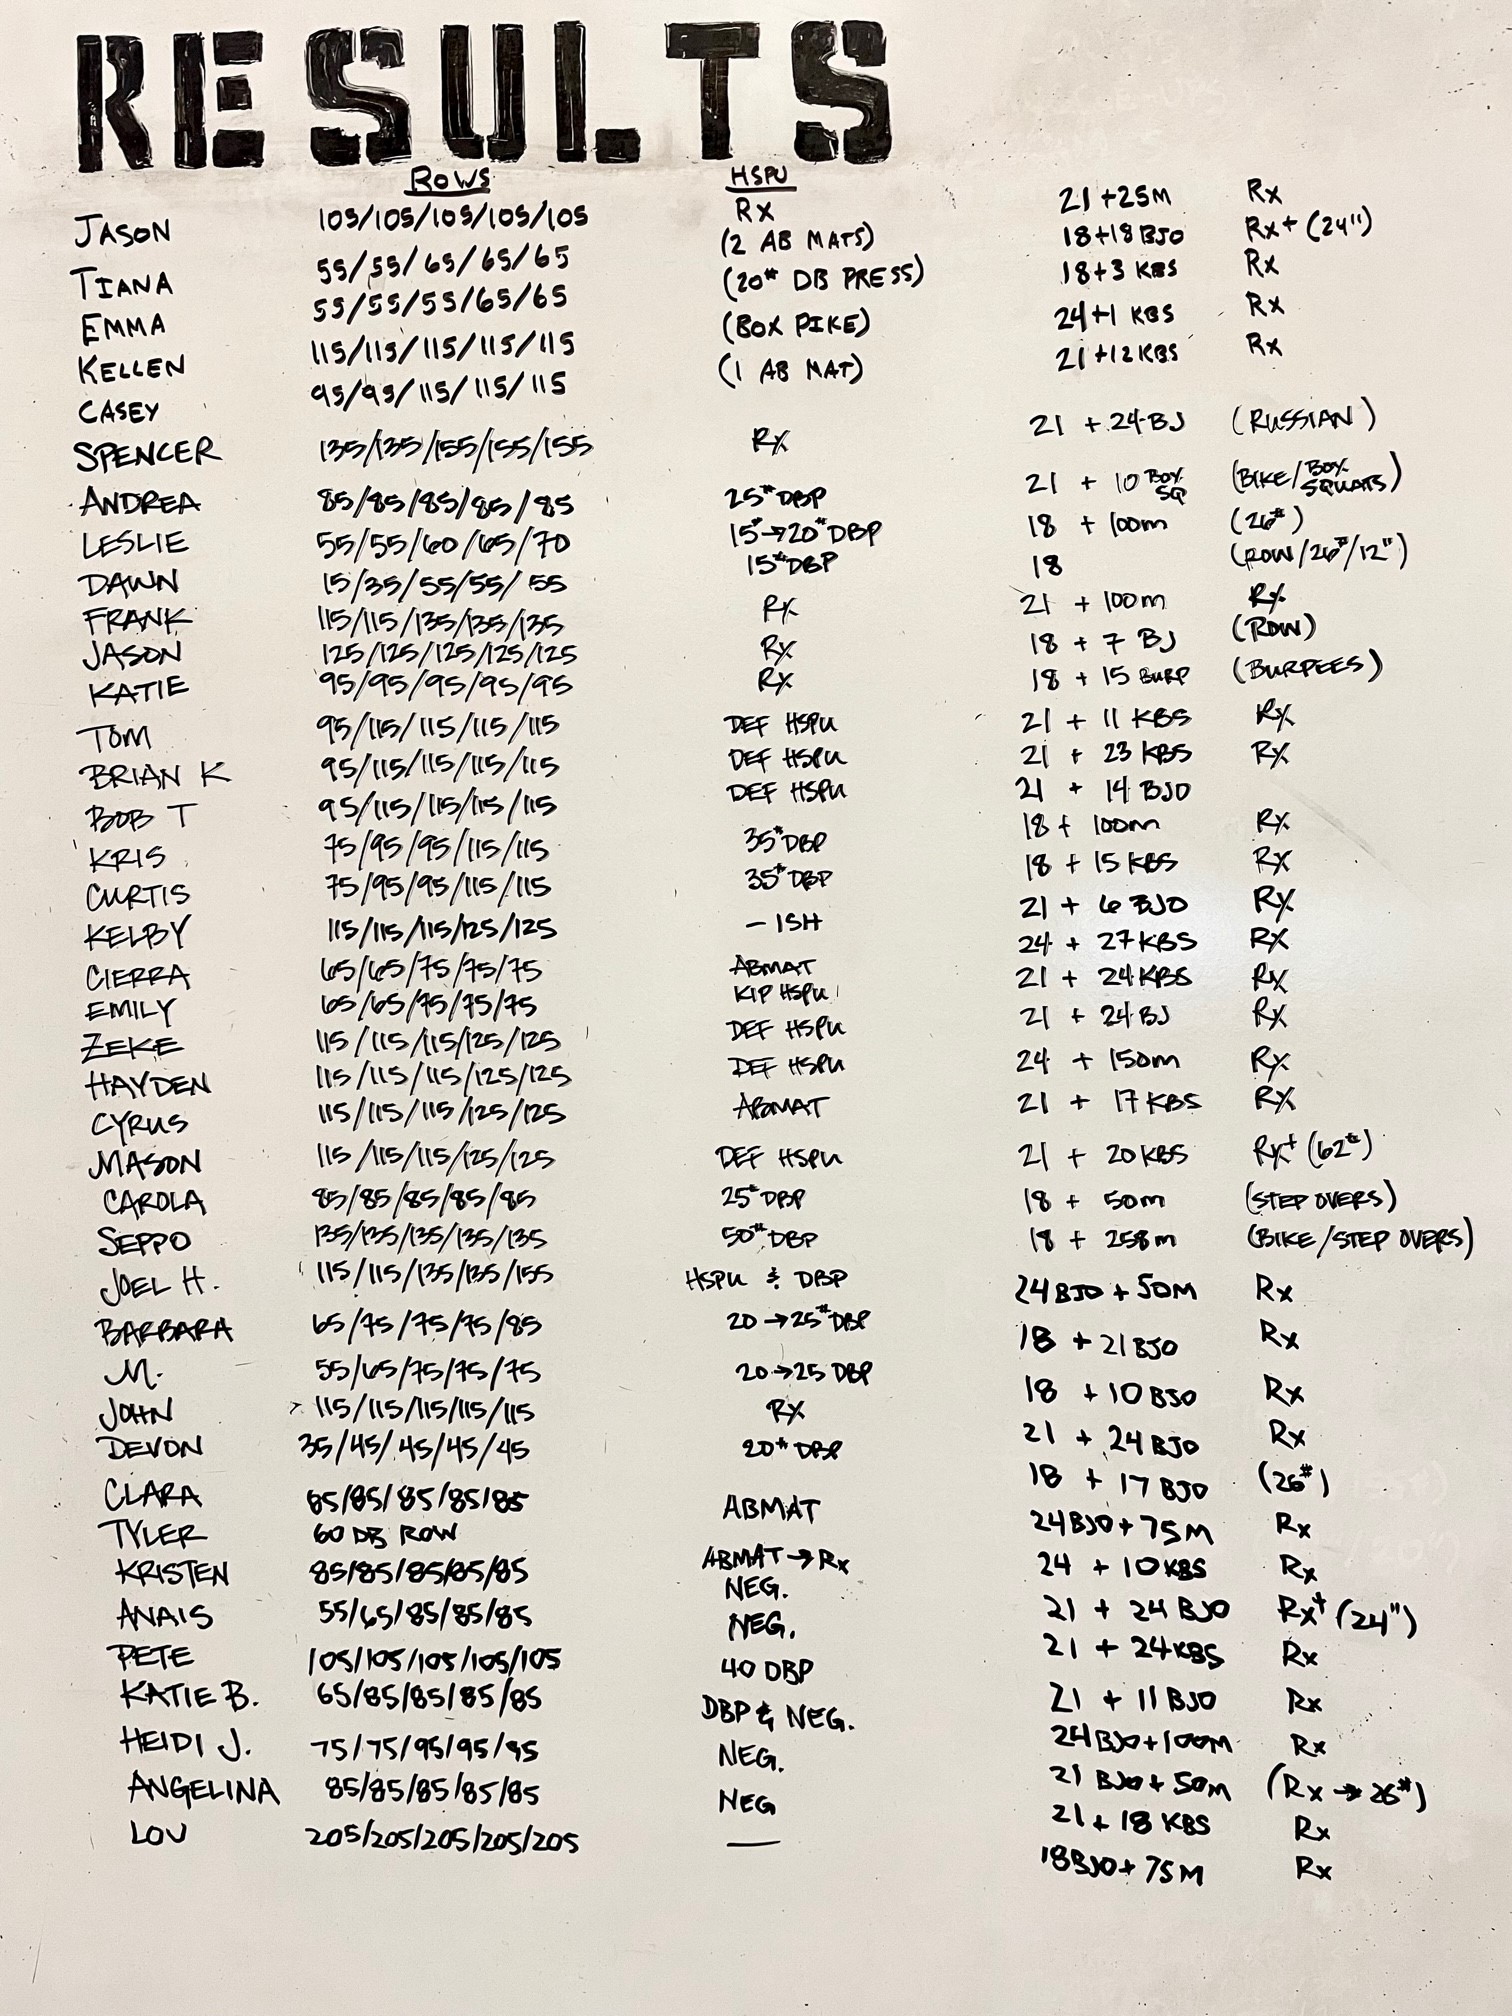 RESULTS
ROWS HSPU
JASON 105/105/105/105/105 RX 21+25M Rx
TIANA 55/55/65/65/65 (2 AB MATS) 18+18 BJO Rx+ (24")
EMMA 55/55/55/65/65 (20# DB PRESS) 18+3 KBS Rx
KELLEN 115/115/115/115/115 (BOX PIKE) 24+1 KBS Rx
CASEY 95/95/115/115/115 (1 AB MAT) 21+12KBS Rx
SPENCER 135/135/155/155/155 Rx 21 + 24 BJ (RUSSIAN)
ANDREA 85/85/85/85/85 25# DBP 21 + 10 BOX SQ (BIKE/BOX SQUATS)
LESLIE 55/55/60/65/70 15#→20# DBP 18 + 100m (26#)
DAWN 15/35/55/55/55 15# DBP 18 (ROW/26#/12")
FRANK 115/115/135/135/135 Rx 21 + 100m Rx
JASON 125/125/125/125/125 Rx 18 + 7 BJ (ROW)
KATIE 95/95/95/95/95 Rx 18 + 15 BURP (BURPEES)
TOM 95/115/115/115/115 DEF HSPU 21 + 11 KBS Rx
BRIAN K 95/115/115/115/115 DEF HSPU 21 + 23 KBS Rx
BOB T 95/115/115/115/115 DEF HSPU 21 + 14 BJO
KRIS 75/95/95/115/115 35# DBP 18 + 100m Rx
CURTIS 75/95/95/115/115 35# DBP 18 + 15 KBS Rx
KELBY 115/115/115/125/125 - ISH 21 + 6 BJO Rx
CIERRA 65/65/75/75/75 ABMAT 24 + 27 KBS Rx
EMILY 65/65/75/75/75 KIP HSPU 21 + 24 KBS Rx
ZEKE 115/115/115/125/125 DEF HSPU 21 + 24 BJ Rx
HAYDEN 115/115/115/125/125 DEF HSPU 24 + 150m Rx
CYRUS 115/115/115/125/125 ABMAT 21 + 17 KBS Rx
MASON 115/115/115/125/125 DEF HSPU 21 + 20 KBS Rx+ (62#)
CAROLA 85/85/85/85/85 25# DBP 18 + 50m (STEP OVERS)
SEPPO 135/135/135/135/135 50# DBP 18 + 258m (BIKE/STEP OVERS)
JOEL H. 115/115/135/135/155 HSPU & DBP 24 BJO + 50M Rx
BARBARA 65/75/75/75/85 20→25# DBP 18 + 21 BJO Rx
M. 55/65/75/75/75 20→25 DBP 18 + 10 BJO Rx
JOHN 115/115/115/115/115 RX 21 + 24 BJO Rx
DEVON 35/45/45/45/45 20# DBP 18 + 17 BJO (26#)
CLARA 85/85/85/85/85 ABMAT 24BJO + 75M Rx
TYLER 60 DB ROW ABMAT→Rx 24 + 10KBS Rx
KRISTEN 85/85/85/85/85 NEG. 21 + 24 BJO Rx+ (24")
ANAIS 55/65/85/85/85 NEG. 21 + 24KBS Rx
PETE 105/105/105/105/105 40 DBP 21 + 11 BJO Rx
KATIE B. 65/85/85/85/85 DBP & NEG. 24BJO+100M Rx
HEIDI J. 75/75/95/95/95 NEG. 21 BJO + 50m (Rx→26#)
ANGELINA 85/85/85/85/85 NEG 21 + 18 KBS Rx
LOU 205/205/205/205/205 — 18BJO + 75M Rx